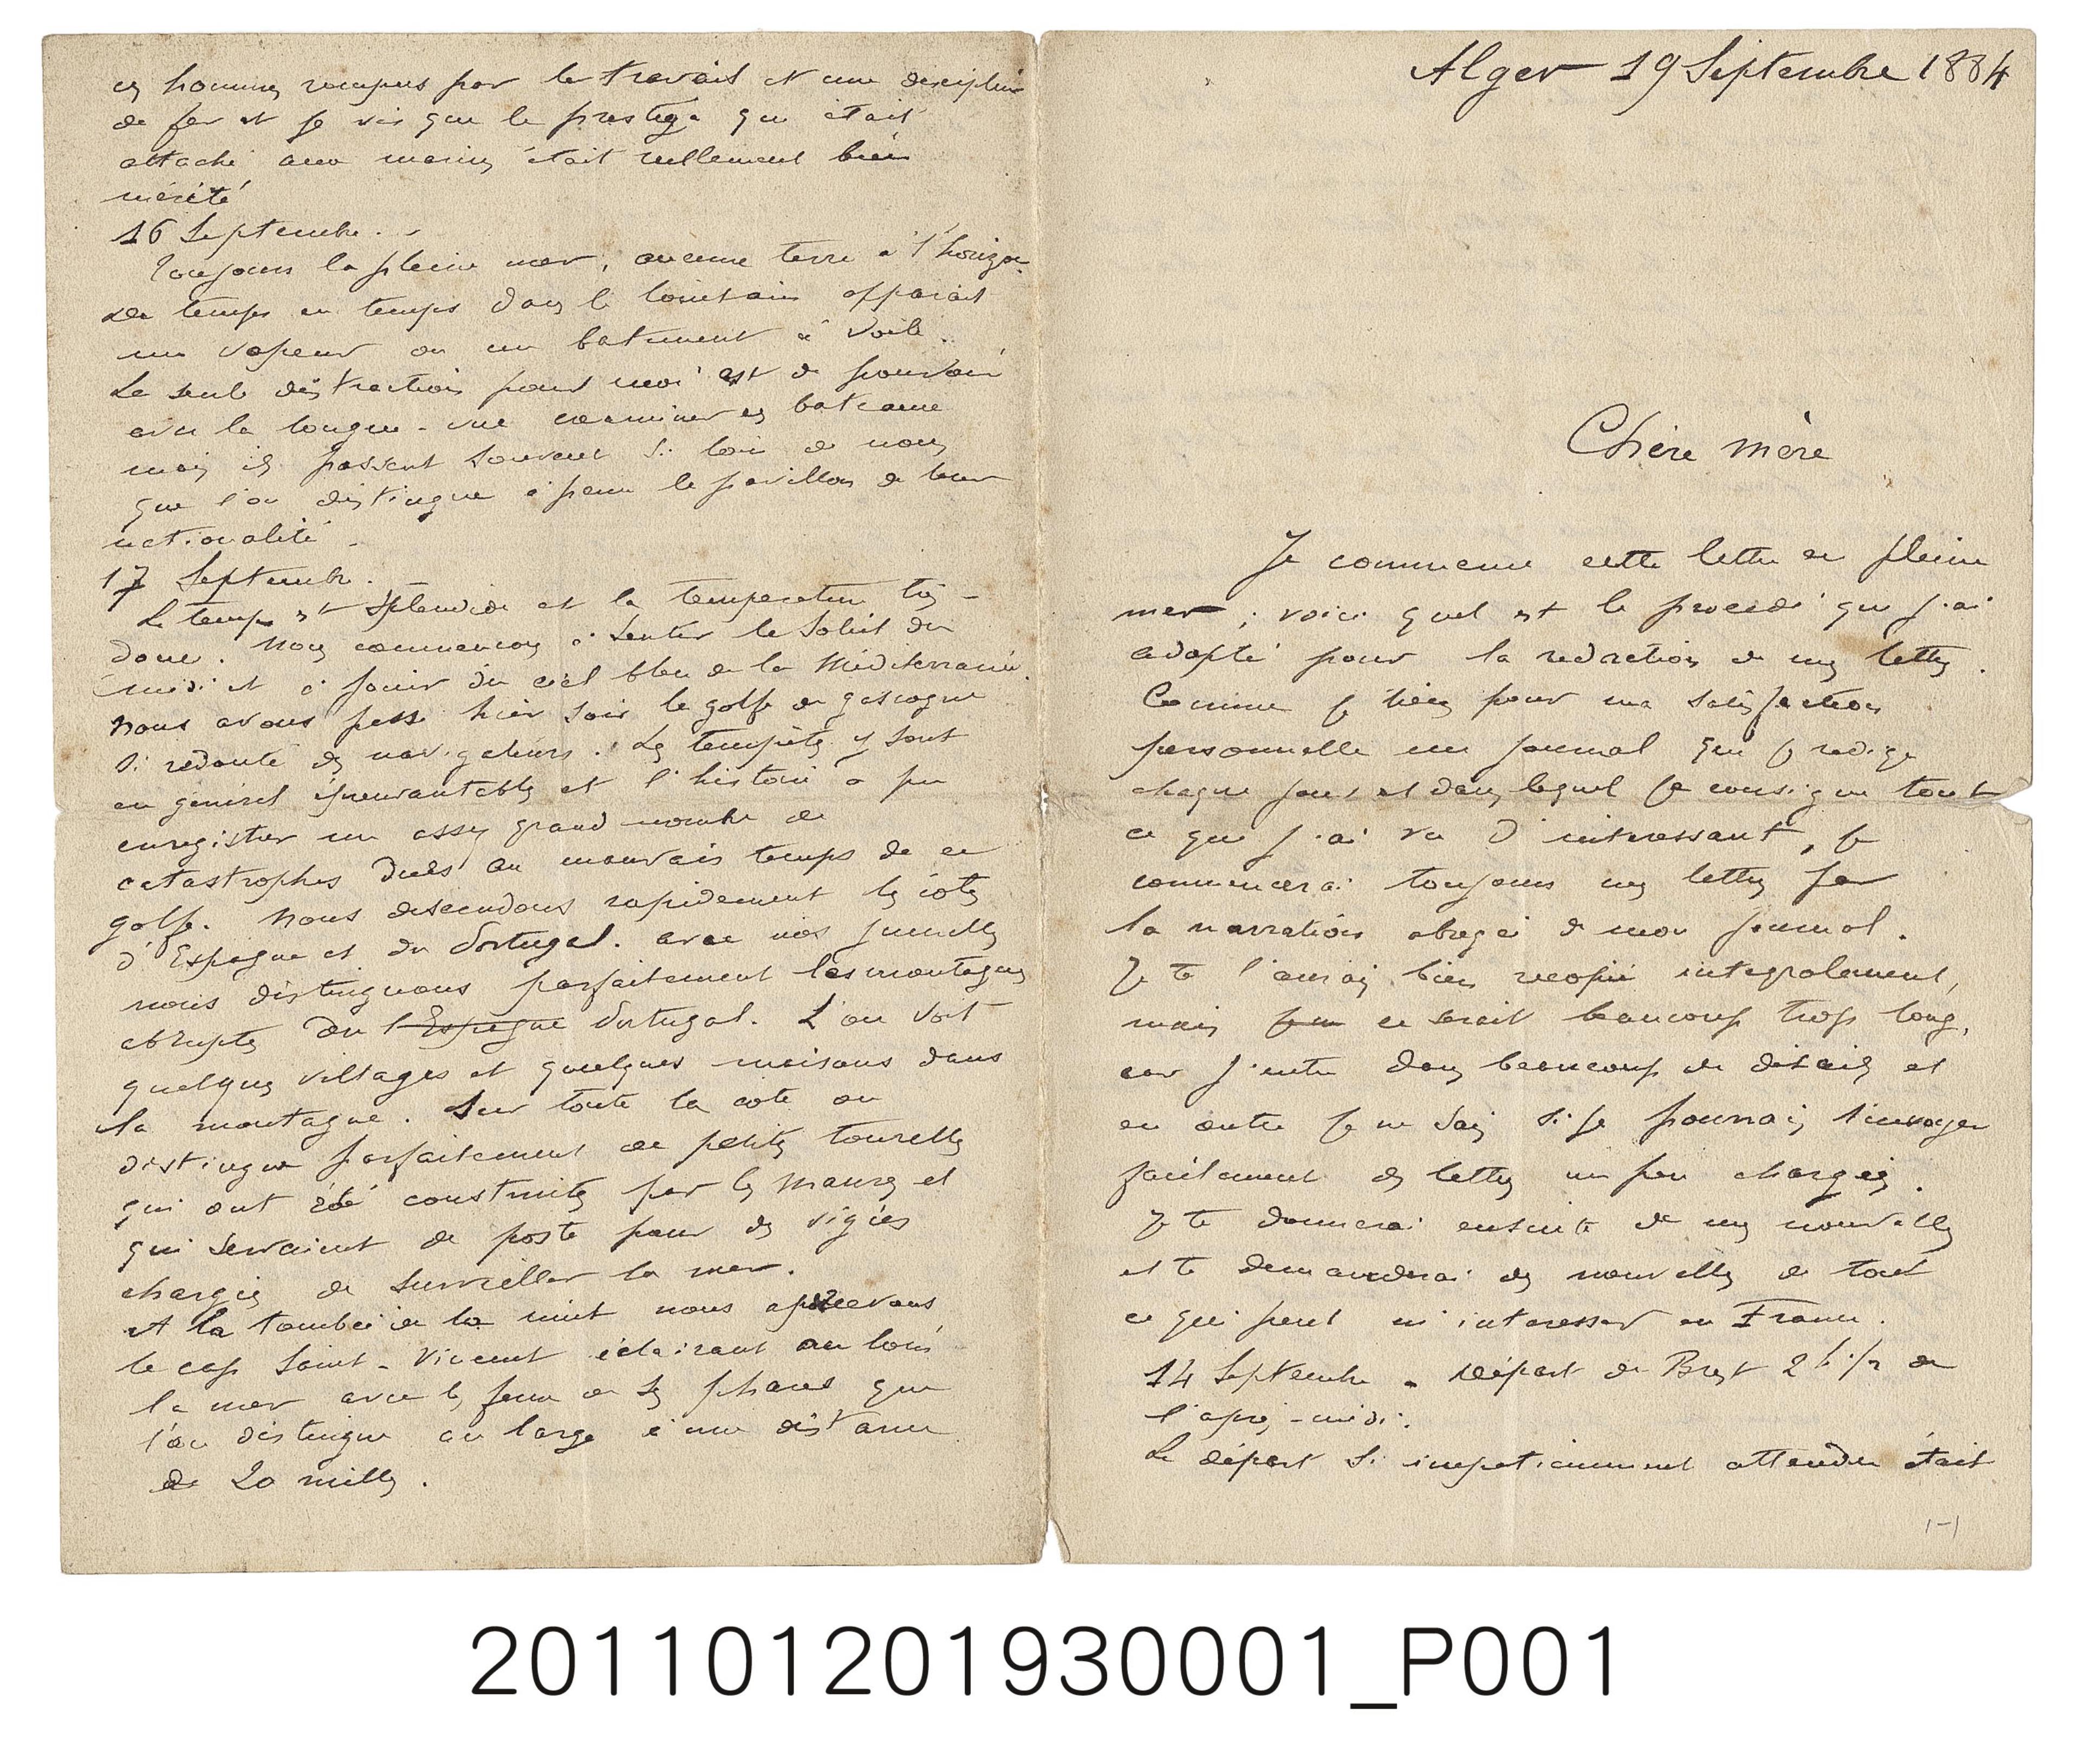 Alger 19 Septembre 1884
Chère mère
Je commence cette lettre en pleine
mer ; voici quel est le procédé que j'ai
adopté pour la redaction de mes lettres.
Comme je tiens pour ma satisfaction
personnelle un journal que je redige
chaque jour et dans lequel je consigne tout
ce que j'ai vu d'interessant, je
commencerai toujours mes lettres par
la narration abregée de mon journal.
Je te l'aurais bien recopié integralement,
mais ce serait beaucoup trop long,
car j'entre dans beaucoup de details et
en outre je ne sais si je pourrai t'envoyer
facilement des lettres un peu chargées.
Je te donnerai ensuite de mes nouvelles
et te demanderai des nouvelles de tout
ce qui peut m'interesser en France.
14 Septembre - Départ de Brest 2 h 1/2 de
l'après-midi.
Le départ si impatiemment attendu était
ces hommes rompus par le travail et une discipline
de fer et je vis que le prestige qui était
attaché aux marins était reellement bien
mérité
16 Septembre. -
Toujours la pleine mer, aucune terre à l'horizon.
De temps en temps dans le lointain apparait
un vapeur ou un batiment à voile.
La seule distraction pour moi est de pouvoir
avec la longue-vue examiner ces bateaux
mais ils passent souvent si loin de nous
que l'on distingue à peine le pavillon de leur
nationalité -
17 Septembre.
Le temps est splendide et la temperature très -
douce. Nous commençons à sentir le soleil du
midi et à jouir du ciel bleu de la Méditerranée.
Nous avons passé hier soir le golfe de gascogne
si redouté des navigateurs. Les tempêtes y sont
en géneral épouvantables et l'histoire a pu
enregistrer un assez grand nombre de
catastrophes dues au mauvais temps de ce
golfe. Nous descendons rapidement les côtes
d'Espagne et du Portugal. avec nos jumelles
nous distinguons parfaitement les montagnes
abruptes du l'Espagne Portugal. L'on voit
quelques villages et quelques maisons dans
la montagne. Sur toute la cote on
distingue parfaitement de petites tourelles
qui ont été construites par les Maures et
qui servaient de poste pour des vigies
chargées de surveiller la mer.
A la tombée de la nuit nous apercevons
le cap Saint-Vincent éclairant au loin
la mer avec les feux de ses phares que
l'on distingue au large à une distance
de 20 milles.
1-1
201101201930001_P001